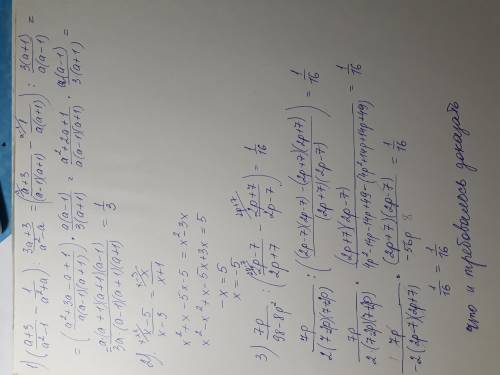 1) ((a+3)/(a²-1) - 1/(a²+a)) : (3a+3)/(a²-a) = ((a+3)/((a-1)(a+1)) - 1/(a(a+1))) : 3(a+1)/(a(a-1)) =
= ((a²+3a-a+1)/(a(a-1)(a+1))) · a(a-1)/(3(a+1)) = (a²+2a+1)/(a(a-1)(a+1)) · a(a-1)/(3(a+1)) =
= 1/3
2) (x-5)/(x-3) = x/(x+1)
x²+x-5x-5 = x²-3x
x²-x²+x-5x+3x = 5
-x = 5
x = -5
3) 7p/(98-8p²) : ((2p-7)/(2p+7) - (2p+7)/(2p-7)) = 1/16
7p/(2(7-2p)(7+2p)) : (((2p-7)(2p-7)-(2p+7)(2p+7))/((2p+7)(2p-7))) = 1/16
7p/(2(7-2p)(7+2p)) · (2p+7)(2p-7)/(4p²-14p-14p+49-(4p²+14p+14p+49)) = 1/16
7p/(-2(2p-7)(2p+7)) · (2p+7)(2p-7)/(-56p) = 1/16
8
1/16 = 1/16
что и требовалось доказать